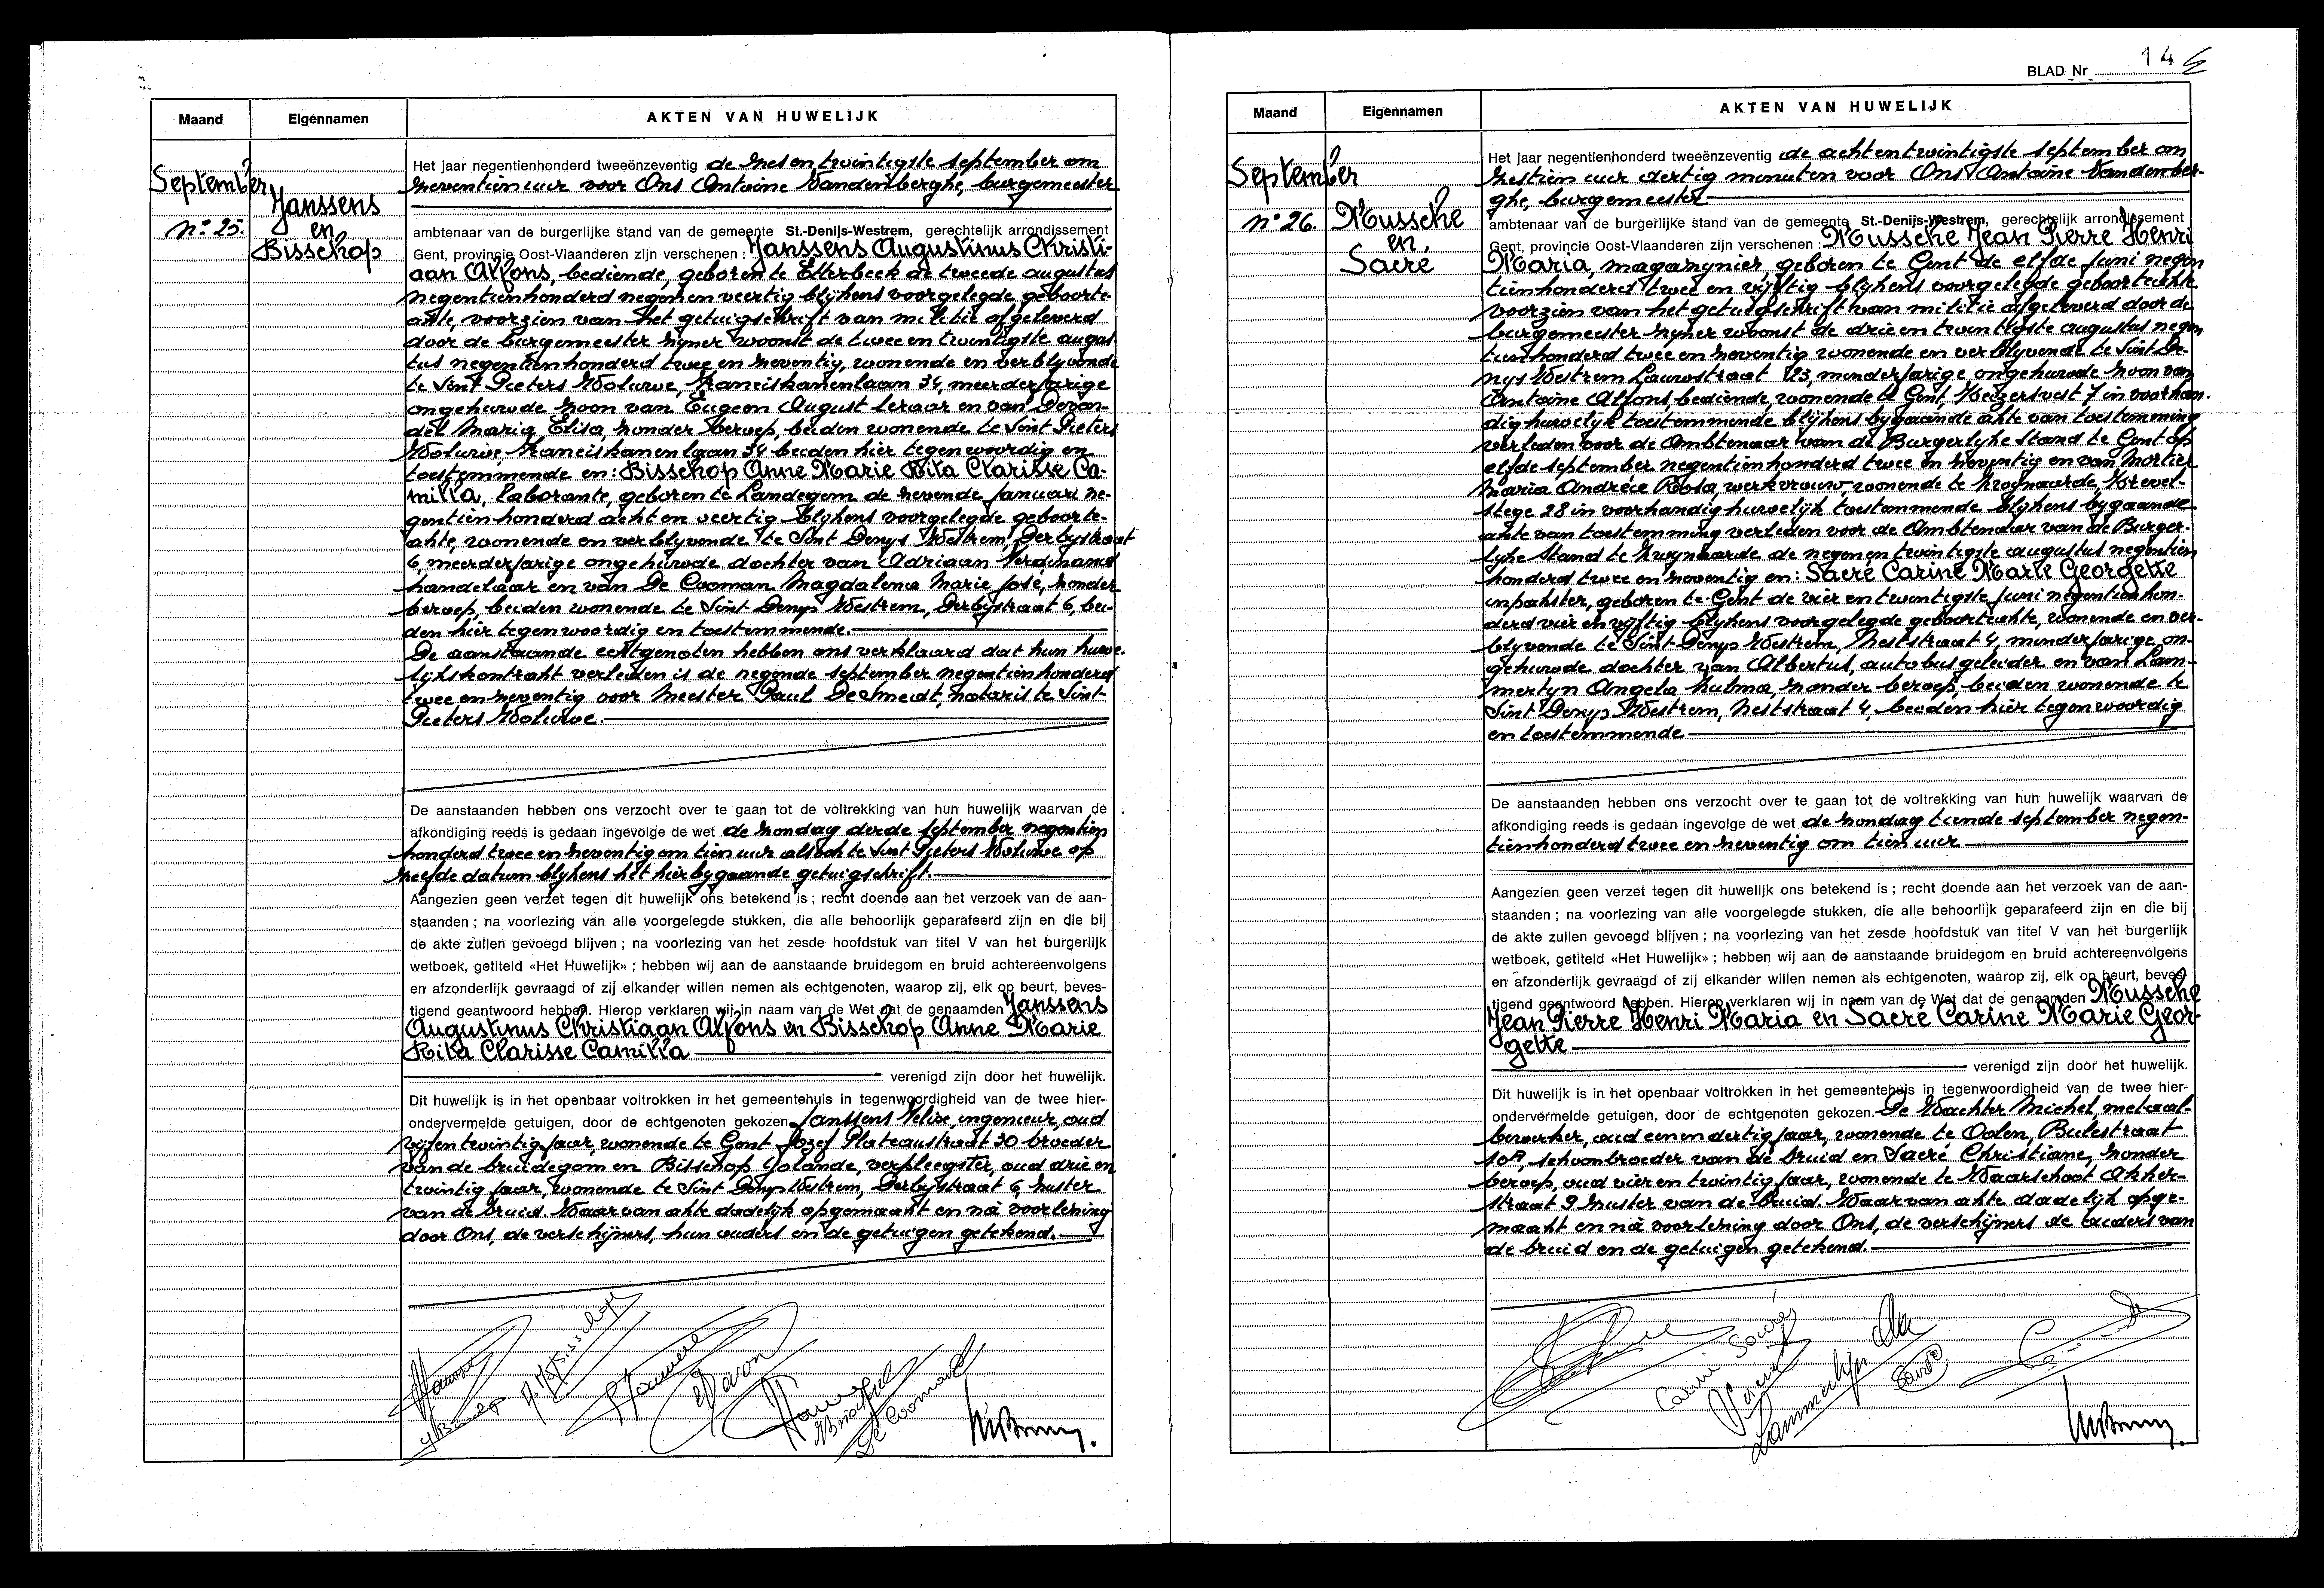 Maand
Eigennamen
AKTEN VAN HUWELIJK
September
n° 25.
Janssens
en
Bisschop
Het jaar negentienhonderd tweeënzeventig de zesentwintigste september om
zeventien uur voor Ons Antoine Vandenberghe, burgemeester
ambtenaar van de burgerlijke stand van de gemeente St.-Denijs-Westrem, gerechtelijk arrondissement
Gent, provincie Oost-Vlaanderen zijn verschenen : Janssens Augustinus Christi-
aan Alfons, bediende, geboren te Etterbeek de tweede augustus
negentienhonderd negen en veertig blijkens voorgelegde geboorte-
akte, voorzien van het getuigschrift van militie afgeleverd
door de burgemeester zijner woonst de twee en twintigste augus
tus negentienhonderd twee en zeventig, wonende en verblijvende
te Sint Pieters Woluwe, Franciskanenlaan 34, meerderjarige
ongehuwde zoon van Eugeen August leraar en van Devon-
del Maria Elisa, zonder beroep, beiden wonende te Sint Pieters
Woluwe Franciskanenlaan 34 beiden hier tegenwoordig en
toestemmende en: Bisschop Anne Marie Rita Clarisse Ca-
milla, laborante, geboren te Landegem de zevende januari ne-
gentienhonderd acht en veertig blijkens voorgelegde geboorte-
akte, wonende en verblijvende te Sint Denys Westrem, Derbystraat
6, meerderjarige ongehuwde dochter van Adriaan Ferdinand
handelaar en van De Cooman Magdalena Marie José, zonder
beroep, beiden wonende te Sint Denys Westrem, Derbystraat 6, bei-
den hier tegenwoordig en toestemmende.
De aanstaande echtgenoten hebben ons verklaard dat hun huwe-
lijkskontrakt verleden is de negende september negentienhonderd
twee en zeventig voor Meester Paul De Smedt, notaris te Sint-
Pieters Woluwe.
De aanstaanden hebben ons verzocht over te gaan tot de voltrekking van hun huwelijk waarvan de
afkondiging reeds is gedaan ingevolge de wet de zondag derde september negentien
honderd twee en zeventig om tien uur alsook te Sint Pieters Woluwe op
zelfde datum blijkens het hierbygaande getuigschrift.
Aangezien geen verzet tegen dit huwelijk ons betekend is ; recht doende aan het verzoek van de aan-
staanden ; na voorlezing van alle voorgelegde stukken, die alle behoorlijk geparafeerd zijn en die bij
de akte zullen gevoegd blijven ; na voorlezing van het zesde hoofdstuk van titel V van het burgerlijk
wetboek, getiteld «Het Huwelijk» ; hebben wij aan de aanstaande bruidegom en bruid achtereenvolgens
en afzonderlijk gevraagd of zij elkander willen nemen als echtgenoten, waarop zij, elk op beurt, beves-
tigend geantwoord hebben. Hierop verklaren wij in naam van de Wet dat de genaamden Janssens
Augustinus Christiaan Alfons en Bisschop Anne Marie
Rita Clarisse Camilla
verenigd zijn door het huwelijk.
Dit huwelijk is in het openbaar voltrokken in het gemeentehuis in tegenwoordigheid van de twee hier-
ondervermelde getuigen, door de echtgenoten gekozen. Janssens Felix, ingenieur, oud
vijfen twintig jaar, wonende te Gent Jozef Plateaustraat 30 broeder
van de bruidegom en Bisschop Yolande, verpleegster, oud drie en
twintig jaar, wonende te Sint Denys Westrem, Derbystraat 6, zuster
van de bruid. Waarvan akte dadelijk opgemaakt en na voorlezing
door Ons, de verschijners, hun ouders en de getuigen getekend.
BLAD Nr 146
Maand
Eigennamen
AKTEN VAN HUWELIJK
September
n° 26.
Mussche
en
Sacré
Het jaar negentienhonderd tweeënzeventig de achtentwintigste september om
zestien uur dertig minuten voor Ons Antoine Vandenber-
ghe, burgemeester
ambtenaar van de burgerlijke stand van de gemeente St.-Denijs-Westrem, gerechtelijk arrondissement
Gent, provincie Oost-Vlaanderen zijn verschenen : Mussche Jean Pierre Henri
Maria, magazynier geboren te Gent de elfde juni negen
tienhonderd twee en vijftig blijkens voorgelegde geboorteakte
voorzien van het getuigschrift van militie afgeleverd door de
burgemeester zijner woonst de drie en twintigste augustus negen
tienhonderd twee en zeventig wonende en verblijvende te Sint De-
nys Westrem Lauwstraat 123, minderjarige ongehuwde zoon van
Antoine Alfons, bediende, wonende te Gent, Keizersvest 7 in voorhan-
dig huwelijk toestemmende blijkens bygaande akte van toestemming
verleden voor de Ambtenaar van de Burgerlyke Stand te Gent op
elfde september negentienhonderd twee en zeventig en van Mortier
Maria Andréee Rosa, werkvrouw wonende te Zwijnaarde,
stege 28 in voorhandig huwelijk toestemmende blijkens bygaande
akte van toestemming verleden voor de Ambtenaar van de Burger-
lyke Stand te Zwynaarde de negenentwintigste augustus negentien
honderd twee en zeventig en: Sacré Carine Marie Georgette
inpakster, geboren te Gent de vier en twintigste juni negentienhon-
derd vier en vijftig blijkens voorgelegde geboorteakte, wonende en ver-
blijvende te Sint Denys Westrem, Neststraat 4, minderjarige on-
gehuwde dochter van Albertus, autobusgeleider en van Lam-
mertyn Angela Zulma, zonder beroep, beiden wonende te
Sint Denys Westrem, Neststraat 4, beiden hier tegenwoordig
en toestemmende
De aanstaanden hebben ons verzocht over te gaan tot de voltrekking van hun huwelijk waarvan de
afkondiging reeds is gedaan ingevolge de wet de zondag tiende september negen-
tienhonderd twee en zeventig om tien uur
Aangezien geen verzet tegen dit huwelijk ons betekend is ; recht doende aan het verzoek van de aan-
staanden ; na voorlezing van alle voorgelegde stukken, die alle behoorlijk geparafeerd zijn en die bij
de akte zullen gevoegd blijven ; na voorlezing van het zesde hoofdstuk van titel V van het burgerlijk
wetboek, getiteld «Het Huwelijk» ; hebben wij aan de aanstaande bruidegom en bruid achtereenvolgens
en afzonderlijk gevraagd of zij elkander willen nemen als echtgenoten, waarop zij, elk op beurt, beves-
tigend geantwoord hebben. Hierop verklaren wij in naam van de Wet dat de genaamden Mussche
Jean Pierre Henri Maria en Sacré Carine Marie Geor-
gette
verenigd zijn door het huwelijk.
Dit huwelijk is in het openbaar voltrokken in het gemeentehuis in tegenwoordigheid van de twee hier-
ondervermelde getuigen, door de echtgenoten gekozen. De Wachter Michel, metaal-
bewerker, oud eenendertig jaar, wonende te Oolen, Bulestraat
, schoonbroeder van de bruid en Sacré Christiane, zonder
beroep, oud vier en twintig jaar, wonende te Waarschoot Akker-
straat 9 zuster van de bruid. Waarvan akte dadelijk opge-
maakt en na voorlezing door Ons, de verschijners de ouders van
de bruid en de getuigen getekend.